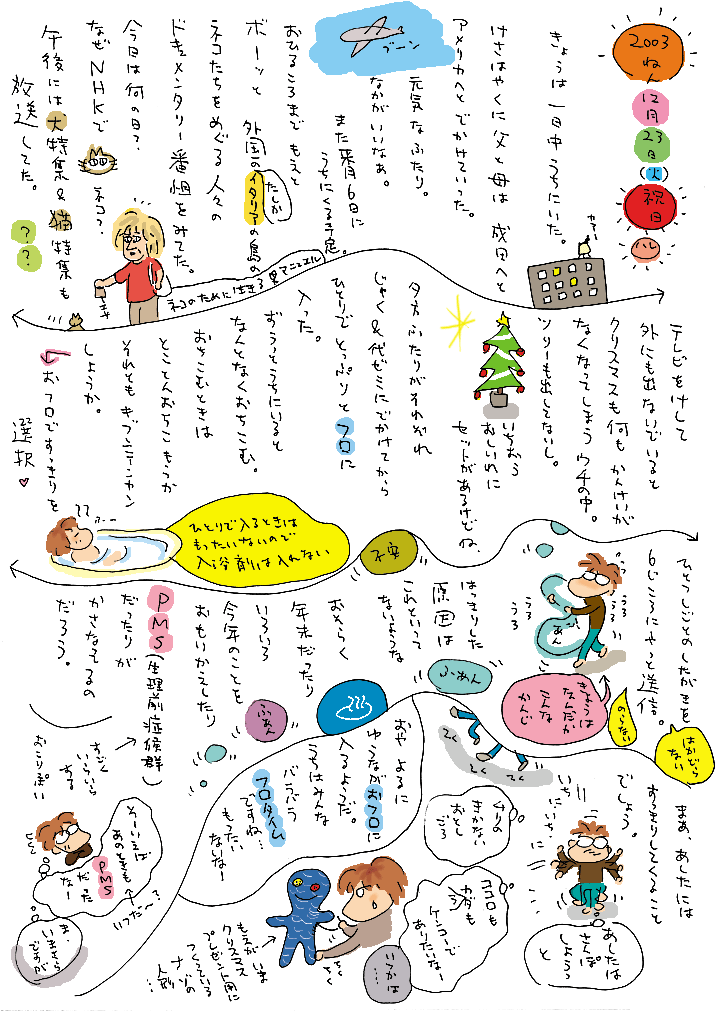 2003
ねん
12
月
23
日
(火)
祝日
ハレ
きょうは 一日中 うちにいた。
カァー
けさはやくに 父と母は 成田へと
アメリカへと でかけていった。
ブーン
元気な ふたり。
なかがいいなぁ。
また来月6日に
うちにくる予定。
おひるころまで もえと
ボーッと 外国の イタリアの島の
たしか
ネコたちを めぐる 人々の
ドキュメンタリー 番組をみてた。
今日は 何の日?
なぜ NHKで ネコ?
午後には 犬特集 & 猫特集も
放送してた。
??
ネコのために生きる男 マニュエル
テレビをけして
外にも出ないでいると
クリスマスも何も かんけいが
なくなってしまう ウチの中。
ツリーも出してないし。
いちおう
おしいれに
セットがあるけどね、
夕方 ふたりがそれぞれ
じゅく & 代ゼミにでかけてから
ひとりで とっぷりと フロに
入った。
おうっとうちにいると
なんとなく おちこむ。
おちこむときは
とことんおちこもうか
それとも キブンテンカン
しようか。
おフロで すっきりを
選択♥
ひとりで入るときは
もったいないので
入浴剤は入れない
不安
ひとつしごとのしたがきを
6じころにやっと送信。
うつ
うつ
うろ
うろ
うろ
うろ
ふあん
きょうは
なんだか
こんな
かんじ
のらない
はかどら
ない
はっきりした
原因は
これといって
ないような
おそらく
年末だったり
いろいろ
今年のことを
おもいかえしたり
PMS(生理前症候群)
だったりが
かさなってるの
だろう。
すごく
いらいら
する
おこりっぽい
ふあん
ふあん
てく
てく
てく
まあ、あしたには
すっきりしてくること
でしょう。
いちにいちに
あしたは
さんぽ
しようっ
と
おや よるに
ゆうながおフロに
入るようだ。
うちはみんな
バラバラ
フロタイム
ですね…
もったい
ないなー
ムリの
きかない
おとし
ごろ
ココロも
カラダも
ケンコーで
ありたいなー
いつかは…
ちく
ちく
もえがいま
クリスマス
プレゼント用に
つくっている
ナゾの
人形…
そーいえば
あのときも
PMS
だった
なー
いつだ〜?
ま、
いまさら
ですが